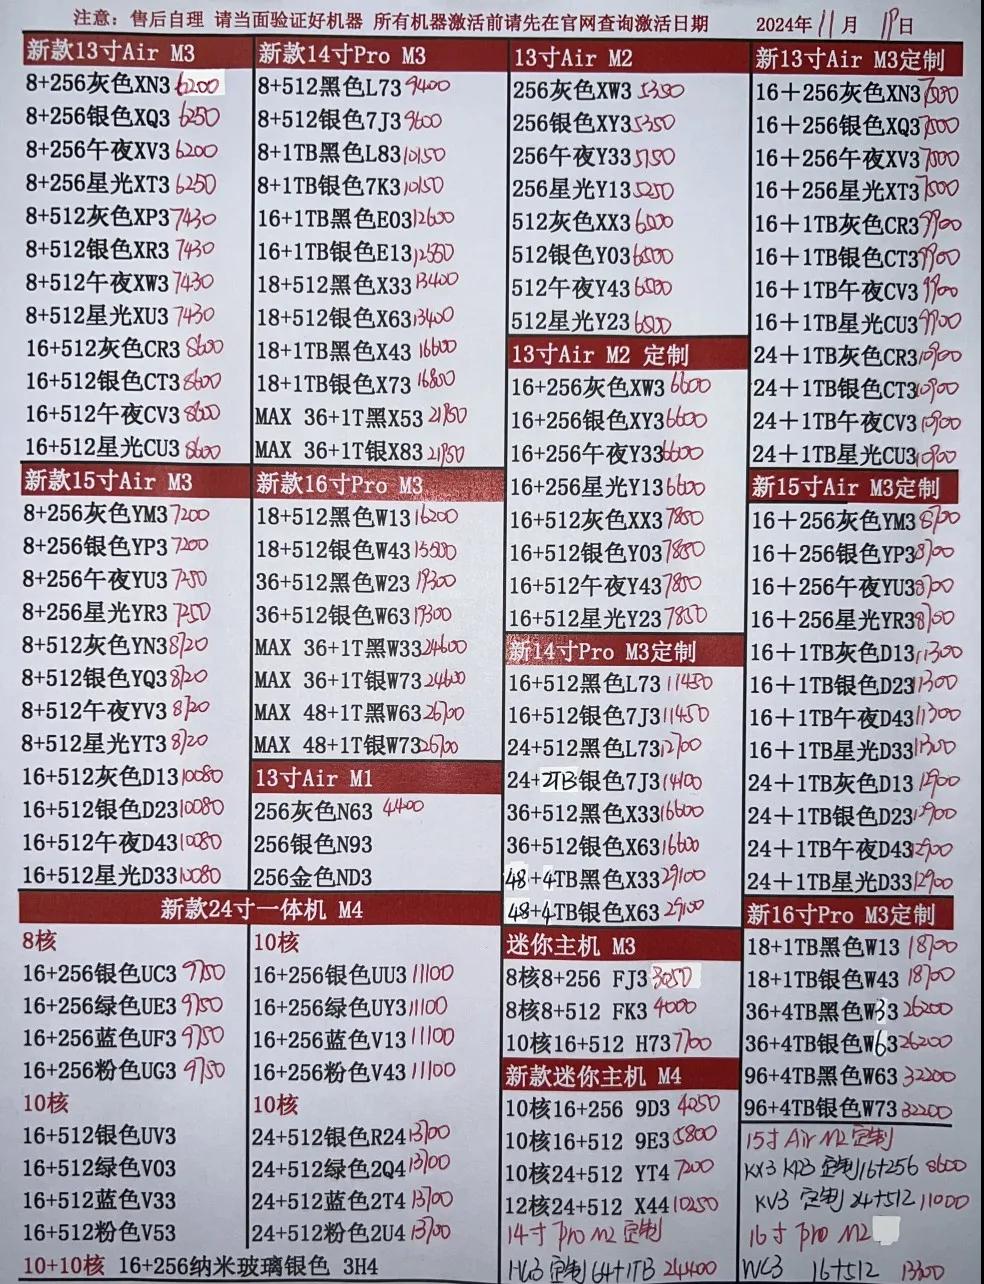 注意：售后自理 请当面验证好机器 所有机器激活前请先在官网查询激活日期 2024年11月19日
新款13寸Air M3
8+256灰色XN3 6200
8+256银色XQ3 6250
8+256午夜XV3 6200
8+256星光XT3 6250
8+512灰色XP3 7430
8+512银色XR3 7430
8+512午夜XW3 7430
8+512星光XU3 7430
16+512灰色CR3 8600
16+512银色CT3 8600
16+512午夜CV3 8600
16+512星光CU3 8600
新款15寸Air M3
8+256灰色YM3 7200
8+256银色YP3 7200
8+256午夜YU3 7250
8+256星光YR3 7250
8+512灰色YN3 8720
8+512银色YQ3 8720
8+512午夜YV3 8720
8+512星光YT3 8720
16+512灰色D13 10080
16+512银色D23 10080
16+512午夜D43 10080
16+512星光D33 10080
新款14寸Pro M3
8+512黑色L73 9400
8+512银色7J3 9600
8+1TB黑色L83 10150
8+1TB银色7K3 10150
16+1TB黑色E03 12600
16+1TB银色E13 12550
18+512黑色X33 13400
18+512银色X63 13400
18+1TB黑色X43 16600
18+1TB银色X73 16800
MAX 36+1T黑X53 21750
MAX 36+1T银X83 21750
新款16寸Pro M3
18+512黑色W13 16200
18+512银色W43 15500
36+512黑色W23 19300
36+512银色W63 19300
MAX 36+1T黑W33 24600
MAX 36+1T银W73 24600
MAX 48+1T黑W63 26700
MAX 48+1T银W73 26700
13寸Air M1
256灰色N63 4400
256银色N93
256金色ND3
13寸Air M2
256灰色XW3 5350
256银色XY3 5350
256午夜Y33 5150
256星光Y13 5250
512灰色XX3 6500
512银色Y03 6500
512午夜Y43 6500
512星光Y23 6500
13寸Air M2 定制
16+256灰色XW3 6600
16+256银色XY3 6600
16+256午夜Y33 6600
16+256星光Y13 6600
16+512灰色XX3 7850
16+512银色Y03 7850
16+512午夜Y43 7850
16+512星光Y23 7850
新14寸Pro M3定制
16+512黑色L73 11450
16+512银色7J3 11450
24+512黑色L73 12700
24+2TB银色7J3 14100
36+512黑色X33 16600
36+512银色X63 16600
48+4TB黑色X33 29100
48+4TB银色X63 29100
迷你主机 M3
8核8+256 FJ3 3050
8核8+512 FK3 4000
10核16+512 H73 7700
新款迷你主机 M4
10核16+256 9D3 4050
10核16+512 9E3 5800
10核24+512 YT4 7200
12核24+512 X44 10250
14寸 Pro M2 定制
HG3 定制 64+1TB 24400
新13寸Air M3定制
16＋256灰色XN3 7500
16＋256银色XQ3 7500
16＋256午夜XV3 7500
16＋256星光XT3 7500
16＋1TB灰色CR3 9900
16＋1TB银色CT3 9900
16＋1TB午夜CV3 9900
16＋1TB星光CU3 9900
24＋1TB灰色CR3 10900
24＋1TB银色CT3 10900
24＋1TB午夜CV3 10900
24＋1TB星光CU3 10900
新15寸Air M3定制
16＋256灰色YM3 8700
16＋256银色YP3 8700
16＋256午夜YU3 8700
16＋256星光YR3 8700
16＋1TB灰色D13 11300
16＋1TB银色D23 11300
16＋1TB午夜D43 11300
16＋1TB星光D33 11300
24＋1TB灰色D13 12900
24＋1TB银色D23 12900
24＋1TB午夜D43 12900
24＋1TB星光D33 12900
新16寸Pro M3定制
18+1TB黑色W13 18700
18+1TB银色W43 18700
36+4TB黑色W33 26200
36+4TB银色W63 26200
96+4TB黑色W63 32200
96+4TB银色W73 32200
15寸 Air M2 定制
KX3 KQ3 定制 16+256 8600
KV3 定制 24+512 11000
16寸 Pro M2
WC3 16+512 13300
新款24寸一体机 M4
8核
16+256银色UC3 9750
16+256绿色UE3 9750
16+256蓝色UF3 9750
16+256粉色UG3 9750
10核
16+512银色UV3
16+512绿色V03
16+512蓝色V33
16+512粉色V53
10核
16+256银色UU3 11100
16+256绿色UY3 11100
16+256蓝色V13 11100
16+256粉色V43 11100
10核
24+512银色R24 13700
24+512绿色2Q4 13700
24+512蓝色2T4 13700
24+512粉色2U4 13700
10+10核 16+256纳米玻璃银色 3H4